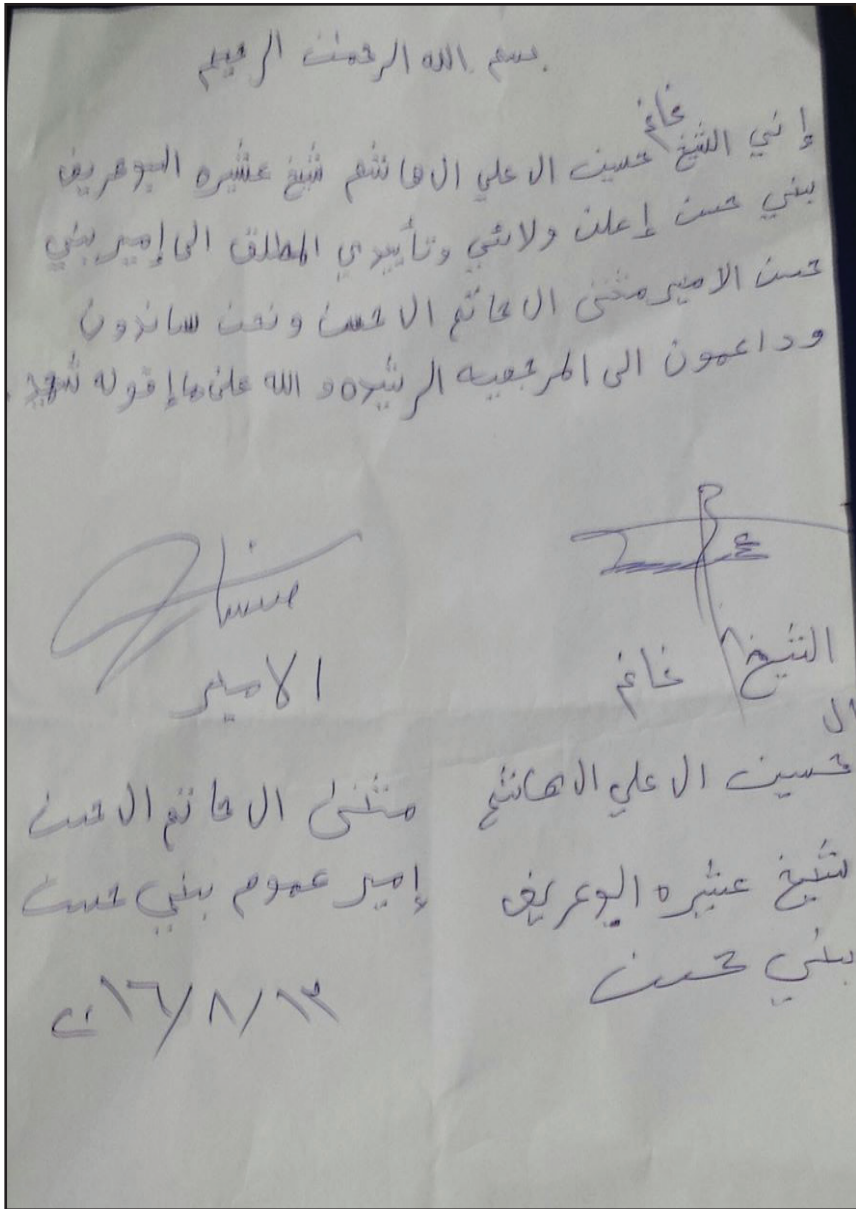 بسم الله الرحمن الرحيم
غانم
إني الشيخ حسين ال علي ال هاشم شيخ عشيره البوعريف
بني حسن إعلن ولائي وتأييدي المطلق الى إمير بني
حسن الامير مثنى ال حاتم ال حسن ونحن ساندون
وداعمون الى المرجعيه الرشيده و الله على ما إقوله شهيد.
الشيخ غانم
ال
حسين ال علي ال هاشم
شيخ عشيره البوعريف
بني حسن
الامير
مثنى ال حاتم ال حسن
إمير عموم بني حسن
٢٠١٦/٨/١٣